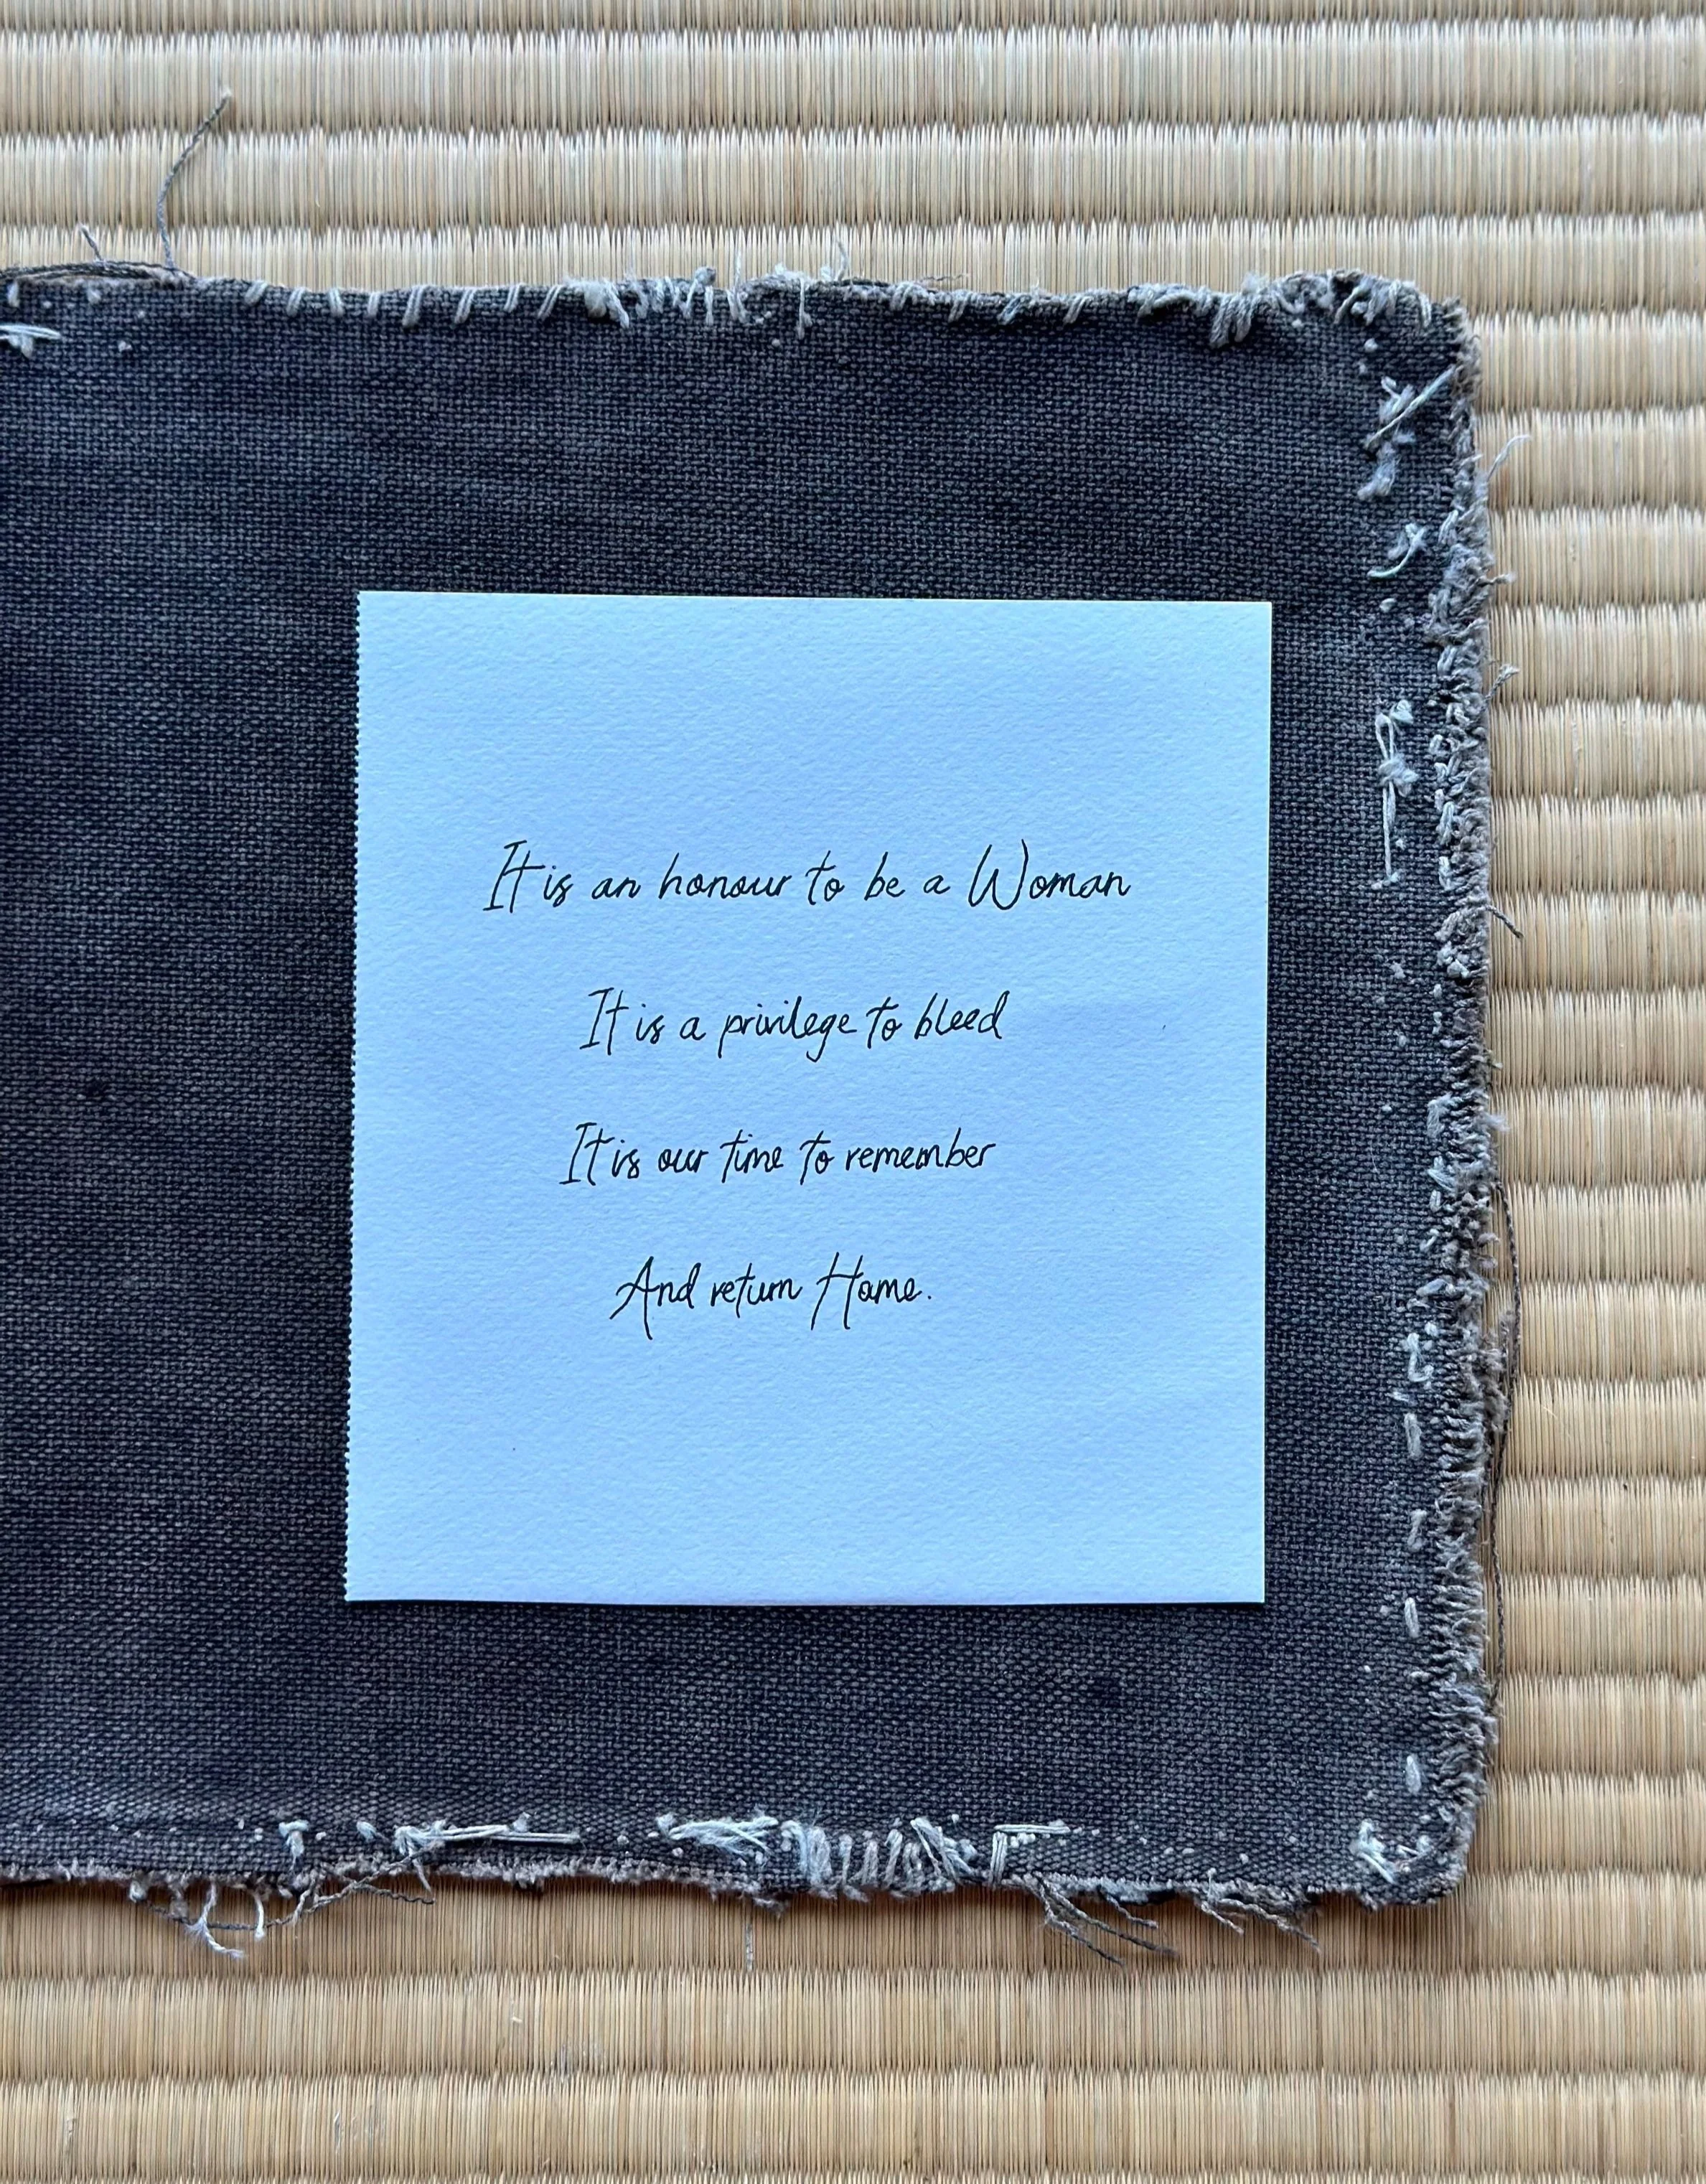 It is an honour to be a Woman
It is a privilege to bleed
It is our time to remember
And return Home.